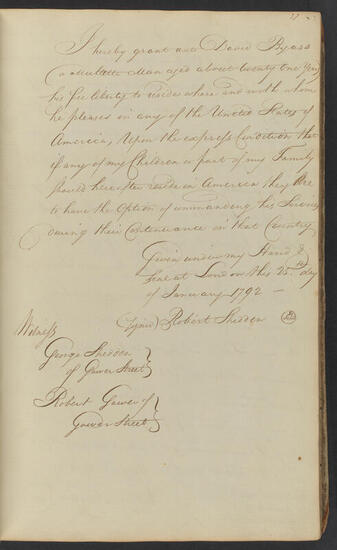 I hereby grant unto David Byass
a Mulatto Man aged about twenty One Years
his free liberty to reside where and with whom
he pleases in any of the United States of
America, Upon the express Condition that
if any of my Children or part of my Family
should hereafter reside in America they are
to have the Option of commanding his Services
during their Continuance in that Country
Given under my Hand &
Seal at London this 25th day
of January 1792 —
(Signed) Robert Shedden
Witness
George Shedden
of Gower Street
Robert Gower of
Gower Street